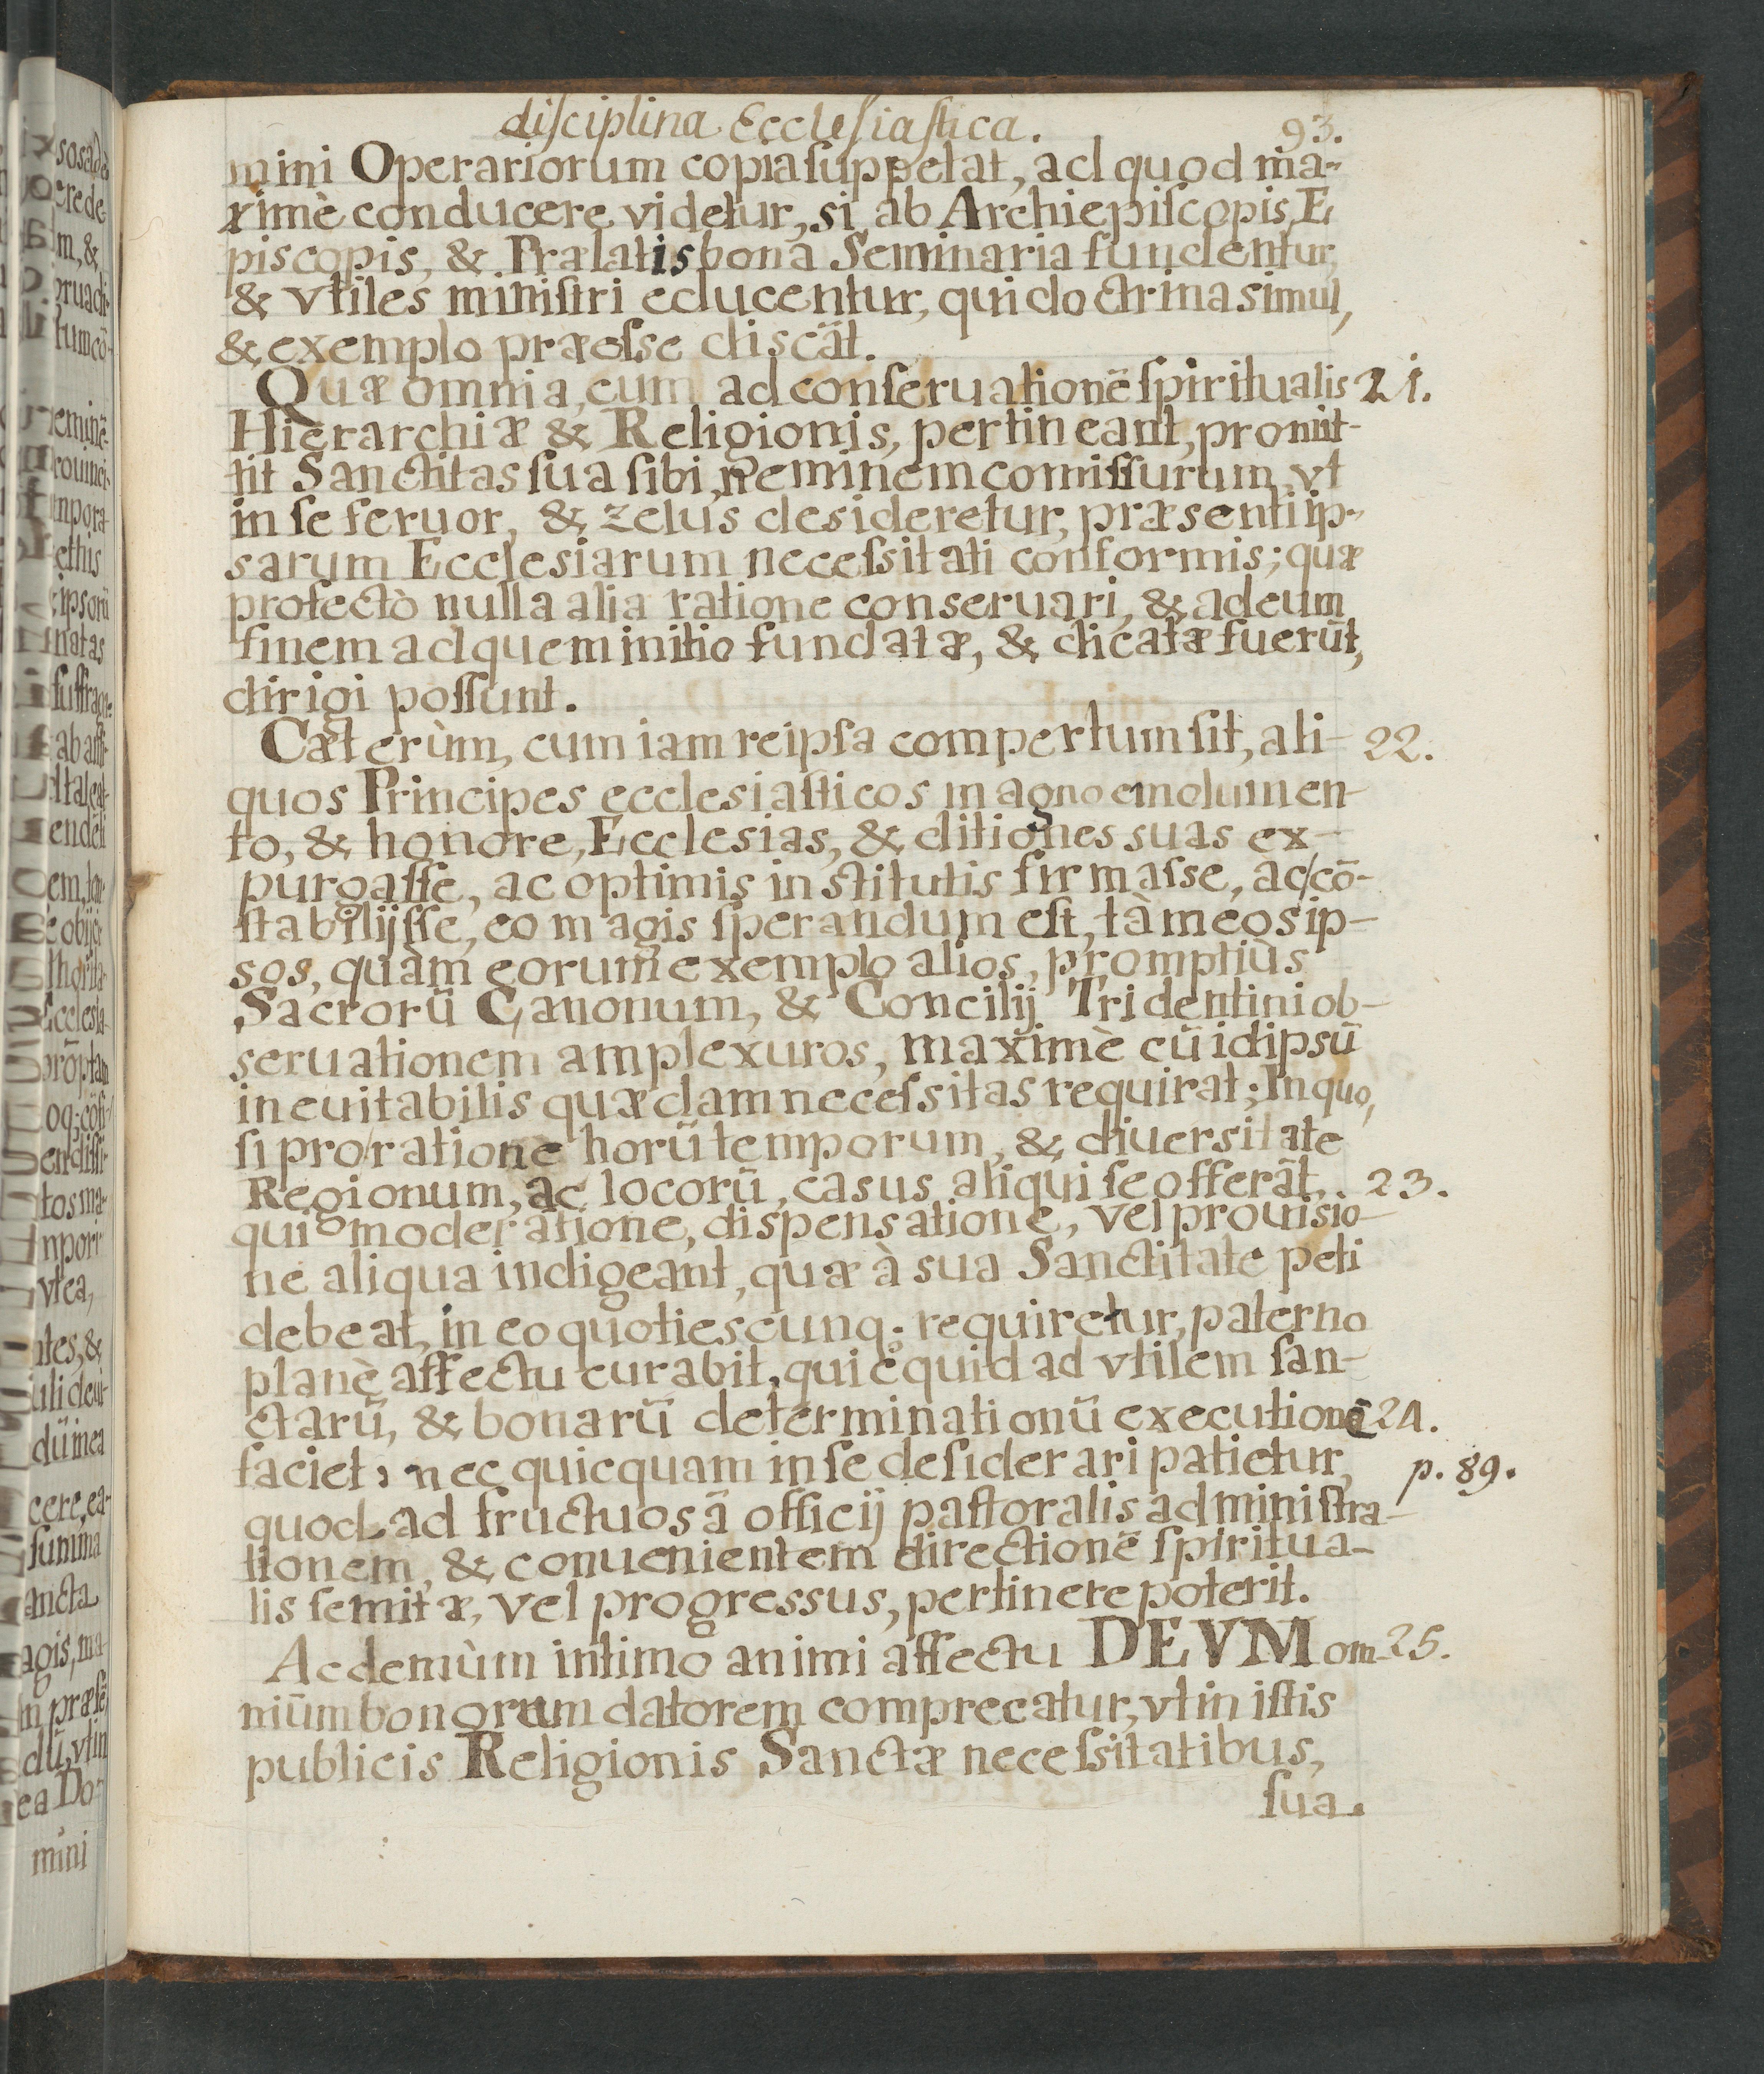 disciplina Ecclesiastica. 93.
mini Operariorum copia suppetat, ad quod ma-
ximè conducere videtur, si ab Archiepiscopis, E
piscopis, & Prælatis bona Seminaria fundentur,
& vtiles ministri educentur, qui doctrina simul,
& exemplo præesse discāt.
Quæ omnia, cum ad conseruationē spiritualis 21.
Hierarchiæ & Religionis, pertineant, promit-
tit Sanctitas sua sibi, neminem comissurum, vt
in se feruor, & zelus desideretur, præsenti ip-
sarum Ecclesiarum necessitati conformis; quæ
profectò nulla alia ratione conseruari, & ad eum
finem ad quem initio fundatæ, & dicatæ fuerūt,
dirigi possunt.
Cæterùm, cum iam reipsa compertum sit, ali- 22.
quos Principes ecclesiasticos magno emolumen-
to, & honore, Ecclesias, & ditiones suas ex-
purgasse, ac optimis institutis firmasse, ac cō-
stabilijsse, eo magis sperandum est, tàm eos ip-
sos, quàm eorum exemplo alios, promptiùs
Sacrorū Canonum, & Concilij Tridentini ob-
seruationem amplexuros, maximè cū idipsū
ineuitabilis quædam necessitas requirat; In quo,
si pro ratione horū temporum, & diuersitate
Regionum, ac locorū, casus aliqui se offerāt, 23.
qui moderatione, dispensatione, vel prouisio-
ne aliqua indigeant, quæ à sua Sanctitate peti
debeat, in eo quotiescunq. requiretur, paterno
planè affectu curabit, quicquid ad vtilem san-
ctarū, & bonarū determinationū executionē 24.
faciet: nec quicquam in se desiderari patietur,
p. 89.
quod ad fructuosā officij pastoralis administra-
tionem, & conuenientem directionē spiritua-
lis semitæ, vel progressus, pertinere poterit.
Ac demùm intimo animi affectu DEVM om- 25.
niūm bonorum datorem comprecatur, vt in istis
publicis Religionis Sanctæ necessitatibus,
sua